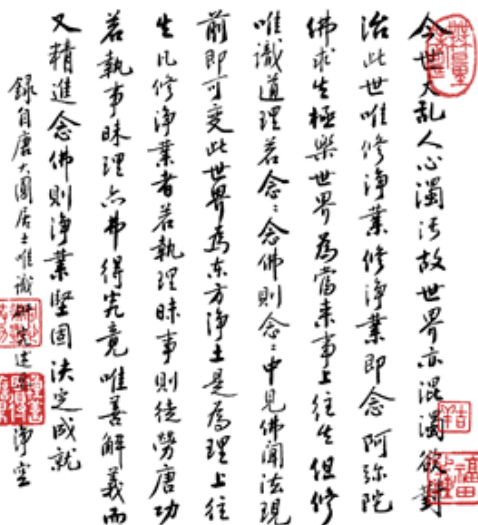 今世大乱人心濁污故世界亦混濁欲對
治此世唯修淨業修淨業即念阿弥陀
佛求生極樂世界為當来事上往生但修
唯識道理若念念佛則念念中見佛聞法現
前即可变此世界為东方淨土是為理上往
生凡修淨業者若執理昧事則徒勞唐功
若執事昧理亦弗得究竟唯善解義而
又精進念佛則淨業堅固決定成就
錄自唐大圓居士唯識研究述要 淨空